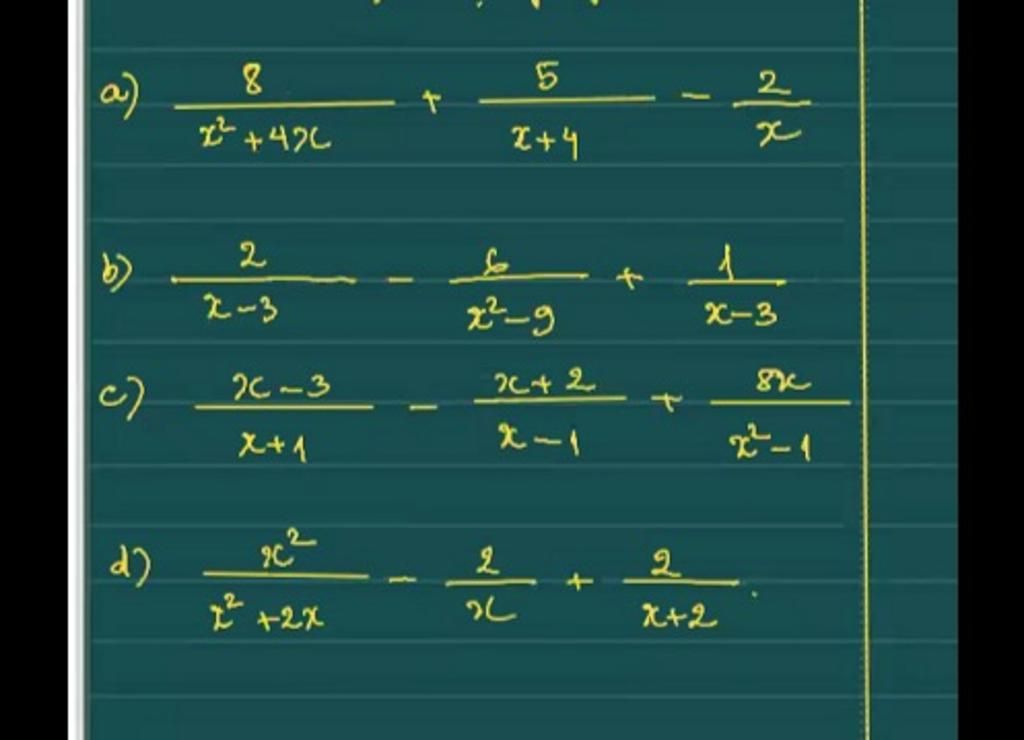 a) 8/(x²+4x) + 5/(x+4) - 2/x
b) 2/(x-3) - 6/(x²-9) + 1/(x-3)
c) (x-3)/(x+1) - (x+2)/(x-1) + 8x/(x²-1)
d) x²/(x²+2x) - 2/x + 2/(x+2).